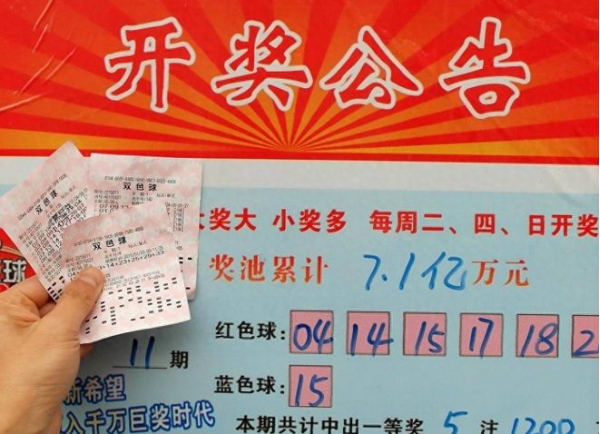 开奖公告
双色球
双色球
大奖大 小奖多 每周二、四、日开奖
奖池累计 7.1亿万元
球
红色球: 04 14 15 17 18 2
11期
蓝色球: 15
新希望
入千万巨奖时代
本期共计中出一等奖 5 注 1200